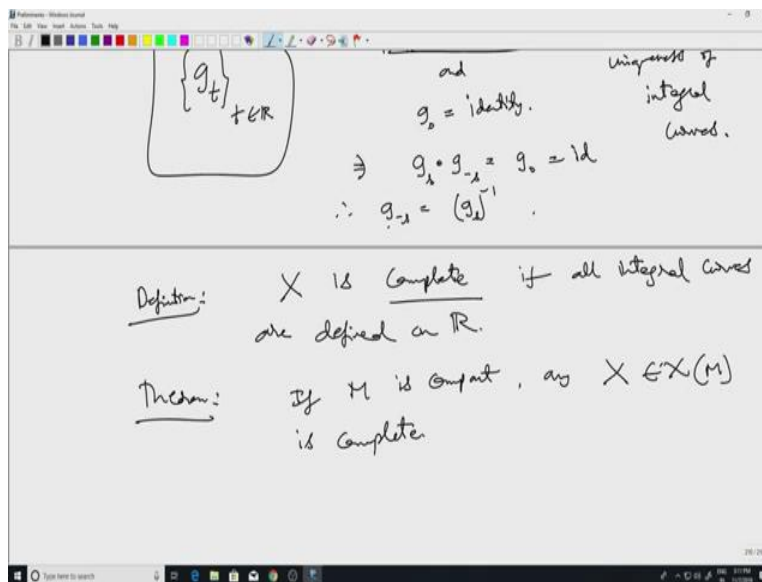 Preliminaries - Windows Journal
File Edit View Insert Actions Tools Help
{g_t}_{t∈ℝ}
and
g_0 = identity.
uniqueness of
integral
curves.
⇒ g_s ∘ g_{-s} = g_0 = id
∴ g_{-s} = (g_s)^{-1}.
Definition: X is Complete if all integral curves
are defined on ℝ.
Theorem: If M is compact, any X ∈ X(M)
is complete
Type here to search